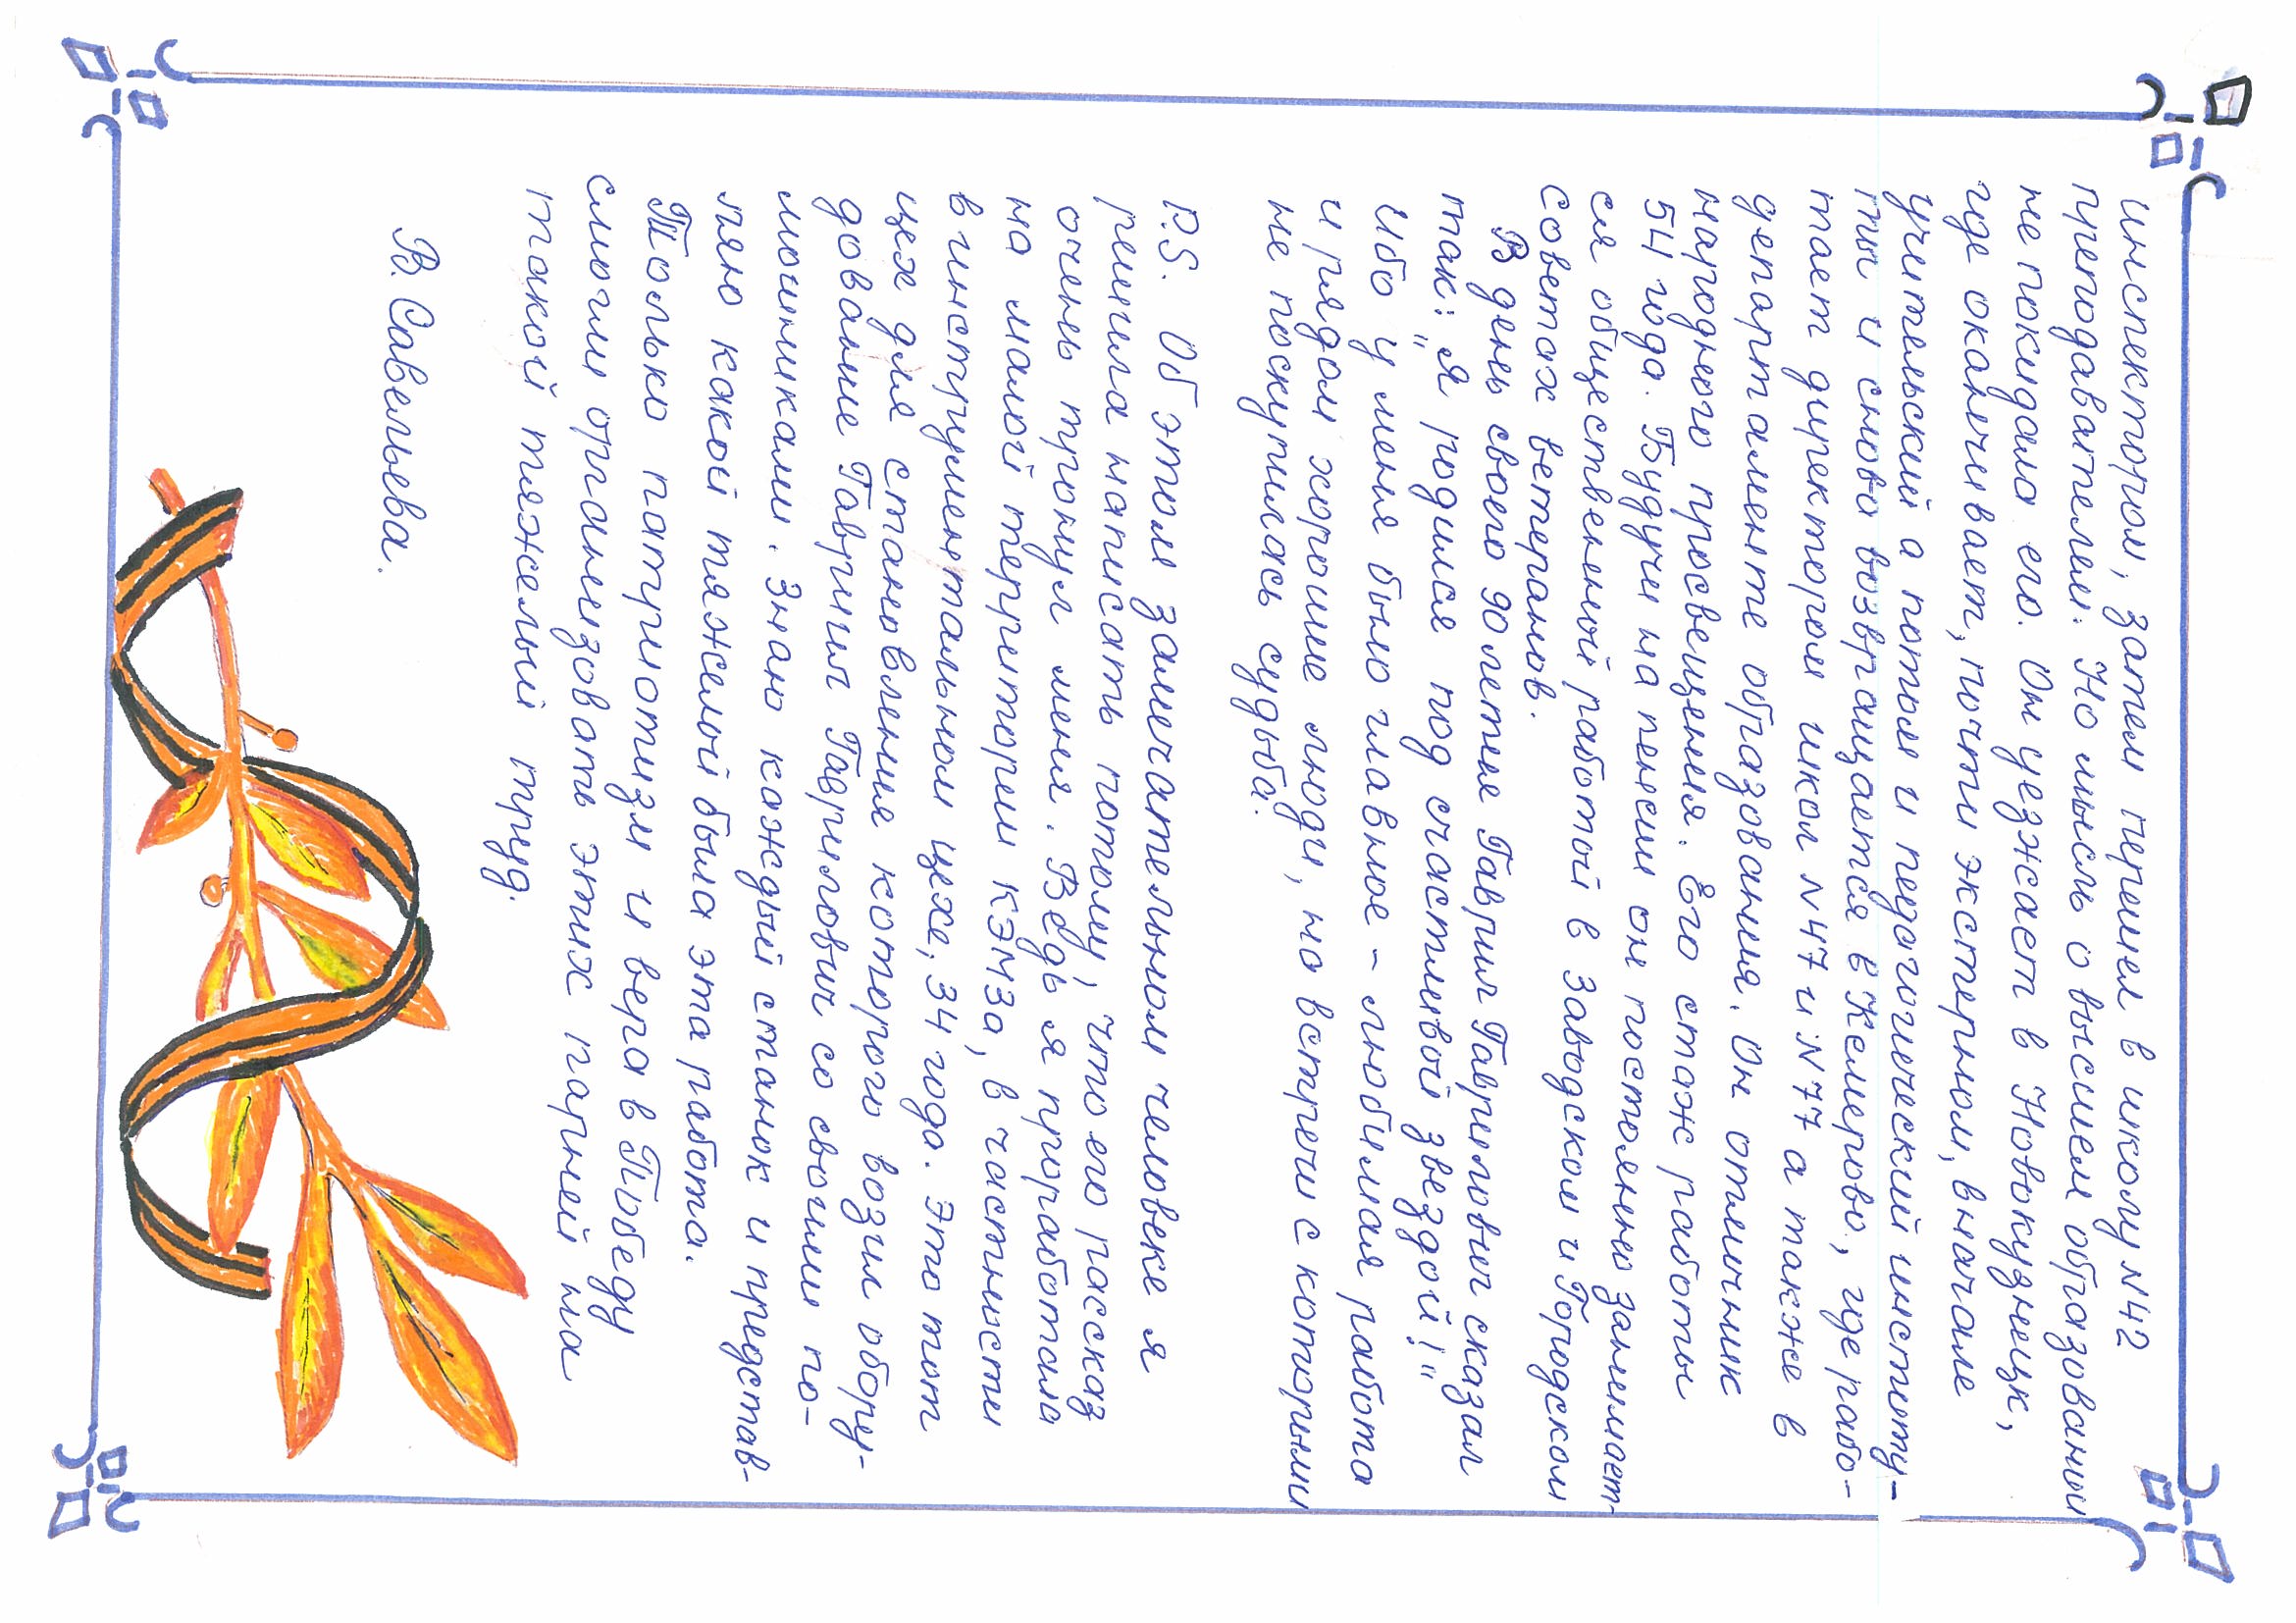 инспектором, затем перешел в школу N42
преподавателем. Но мысль о высшем образовании
не покидала его. Он уезжает в Новокузнецк,
где оканчивает, почти экстерном, вначале
учительский а потом и педагогический институ-
ты и снова возвращается в Кемерово, где рабо-
тает директором школ N47 и N77 а также в
департаменте образования. Он отличник
народного просвещения. Его стаж работы
54 года. Будучи на пенсии он постоянно занимает-
ся общественной работой в Заводском и Городском
советах ветеранов.
В день своего 90 летия Гаврил Гаврилович сказал
так: „Я родился под счастливой звездой!"
Ибо у меня было главное - любимая работа
и рядом хорошие люди, на встречи с которыми
не поскупилась судьба.
P.S. Об этом замечательном человеке я
решила написать потому, что его рассказ
очень тронул меня. Ведь я проработала
на малой территории КЭМЗа, в частности
в инструментальном цехе, 34 года. Это тот
цех для становления которого возил обору-
дование Гаврил Гаврилович со своими по-
мощниками. Знаю каждый станок и представ-
ляю какой тяжелой была эта работа.
Только патриотизм и вера в Победу
смогли организовать этих парней на
такой тяжелый труд.
В. Савельева.